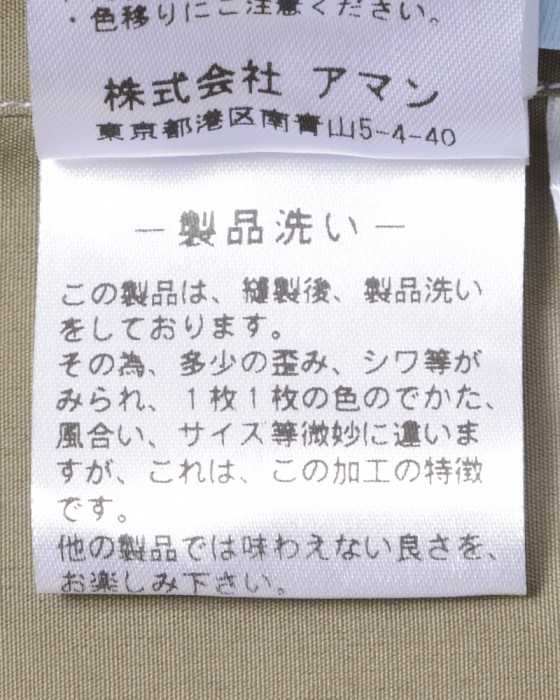 ・色移りにご注意ください。
株式会社 アマン
東京都港区南青山5-4-40
－製品洗い－
この製品は、縫製後、製品洗い
をしております。
その為、多少の歪み、シワ等が
みられ、１枚１枚の色のでかた、
風合い、サイズ等微妙に違いま
すが、これは、この加工の特徴
です。
他の製品では味わえない良さを、
お楽しみ下さい。